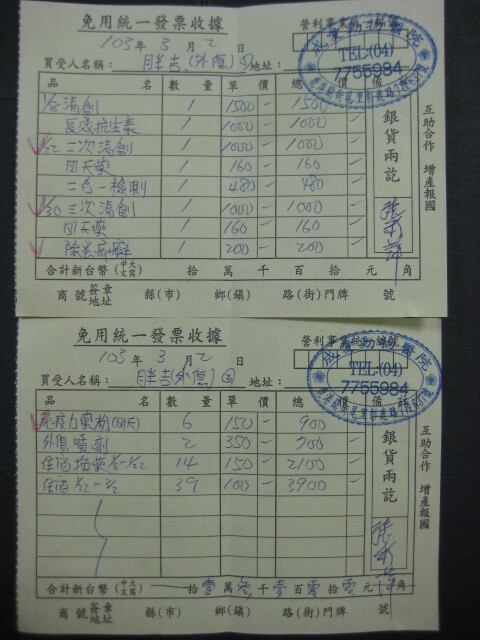 免用統一發票收據
營利事業統一編號
103年 3月 2日
買受人名稱： 胖吉(外傷)① 地址：
TEL:(04)
7755984
品 名 數 量 單 價 總 價 備 註
清創 1 1500 1500
長效抗生素 1 1000 1000
二次清創 1 1000 1000
四天藥 1 160 160
二合一檢測 1 480 480
1/30 三次清創 1 1000 1000
四天藥 1 160 160
1 200 200
銀貨兩訖
互助合作 增產報國
合計新台幣(中大文寫) 拾 萬 千 百 拾 元 角
商號 簽章地址 縣(市) 鄉(鎮) 路(街)門牌 號
免用統一發票收據
營利事業統一編號
103年 3月 2日
買受人名稱： 胖吉(外傷)② 地址：
TEL:(04)
7755984
品 名 數 量 單 價 總 價 備 註
免疫力藥粉 6 150 900
外傷噴劑 2 350 700
住宿 14 150 2100
住宿 39 100 3900
銀貨兩訖
互助合作 增產報國
合計新台幣(中大文寫) 拾壹萬參千壹百零拾零元 角
商號 簽章地址 縣(市) 鄉(鎮) 路(街)門牌 號